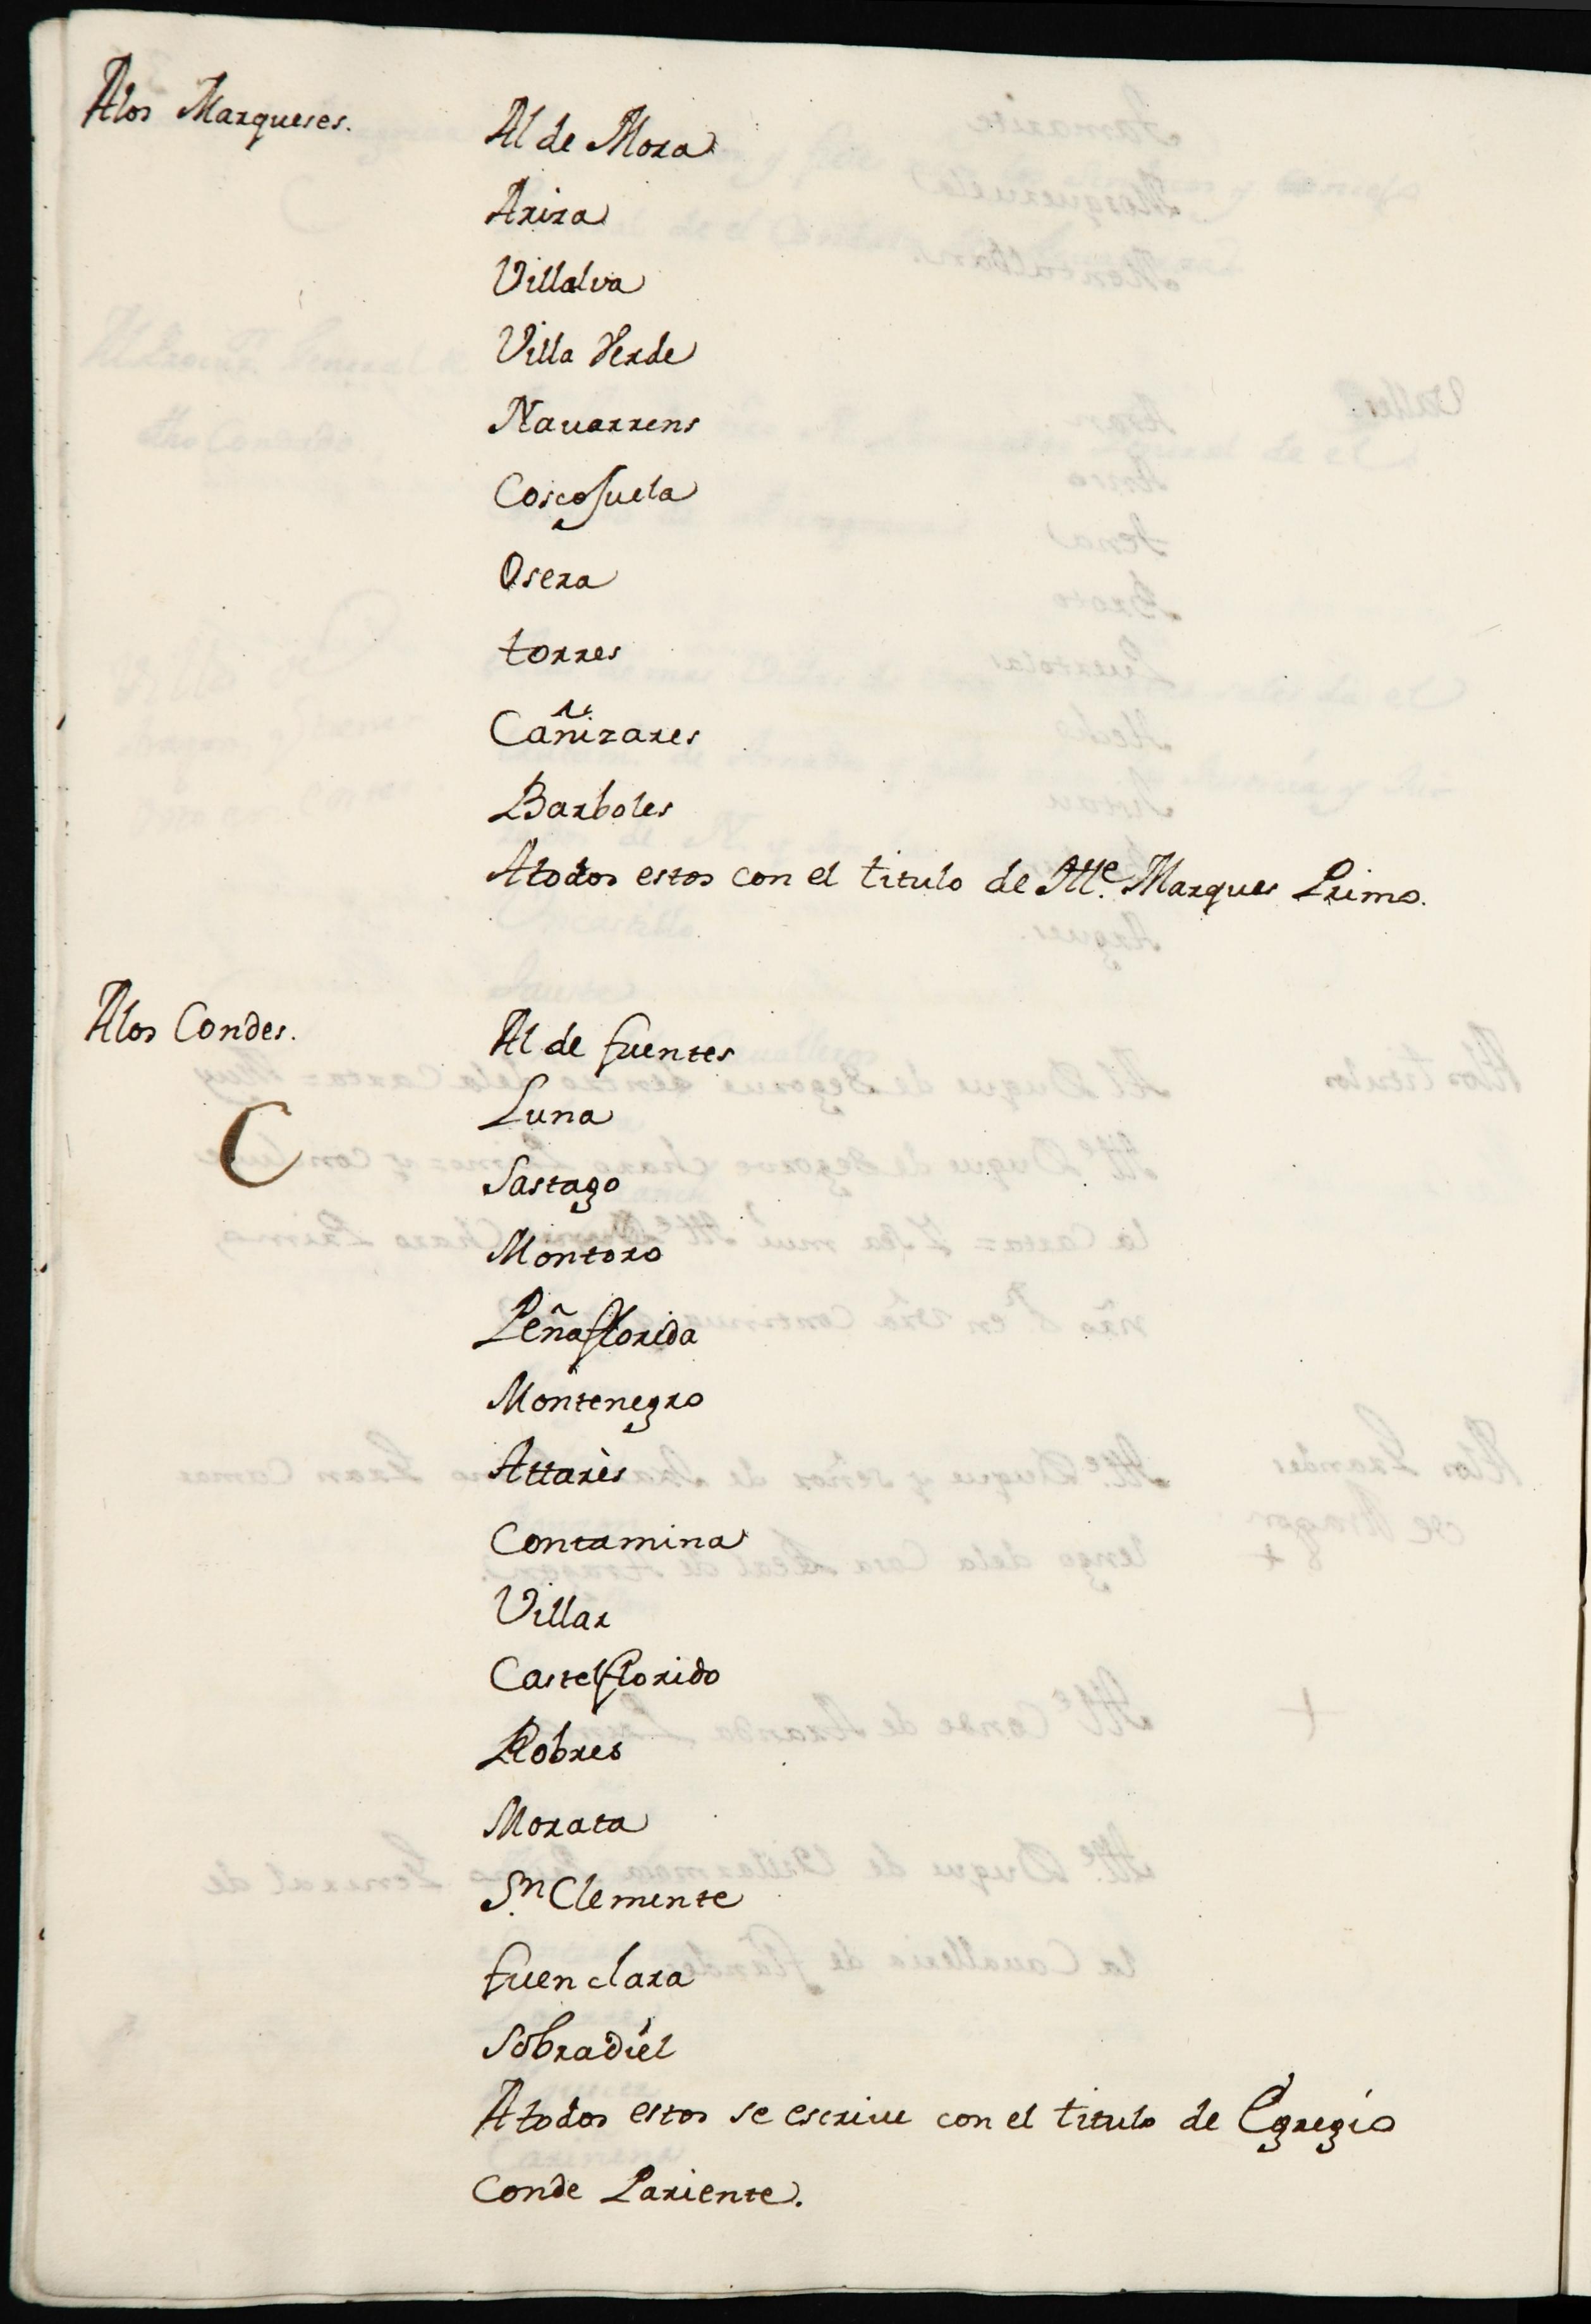 Alos Marqueses.
Al de Mora
Ariza
Villalva
Villa Verde
Navarrens
Coscojuela
Osera
torres
Cañizares
Barboles
Atodos estos con el titulo de Ille. Marques Primo.
Alos Condes.
Al de fuentes
Luna
C
Sastago
Montoro
Peñaflorida
Montenegro
Attarès
Contamina
Villar
Castelflorido
Robres
Morata
Sn. Clemente
fuenclara
Sobradiel
Atodos estos se escrive con el titulo de Egregio
Conde Pariente.